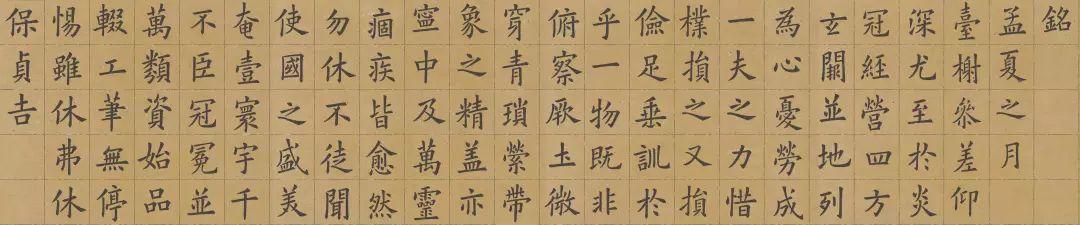 銘
孟夏之月
臺榭參差仰
深尤至於炎
冠經營四方
玄關並地列
為心憂勞成
一夫之力惜
樸損之又損
儉足垂訓於
乎一物既非
俯察厥土微
穿青瑣縈帶
象之精蓋亦
寍中及萬靈
痼疾皆愈然
勿休不徒聞
使國之盛美
奄壹寰宇千
不臣冠冕並
萬類資始品
輟工筆無停
惕雖休弗休
保貞吉